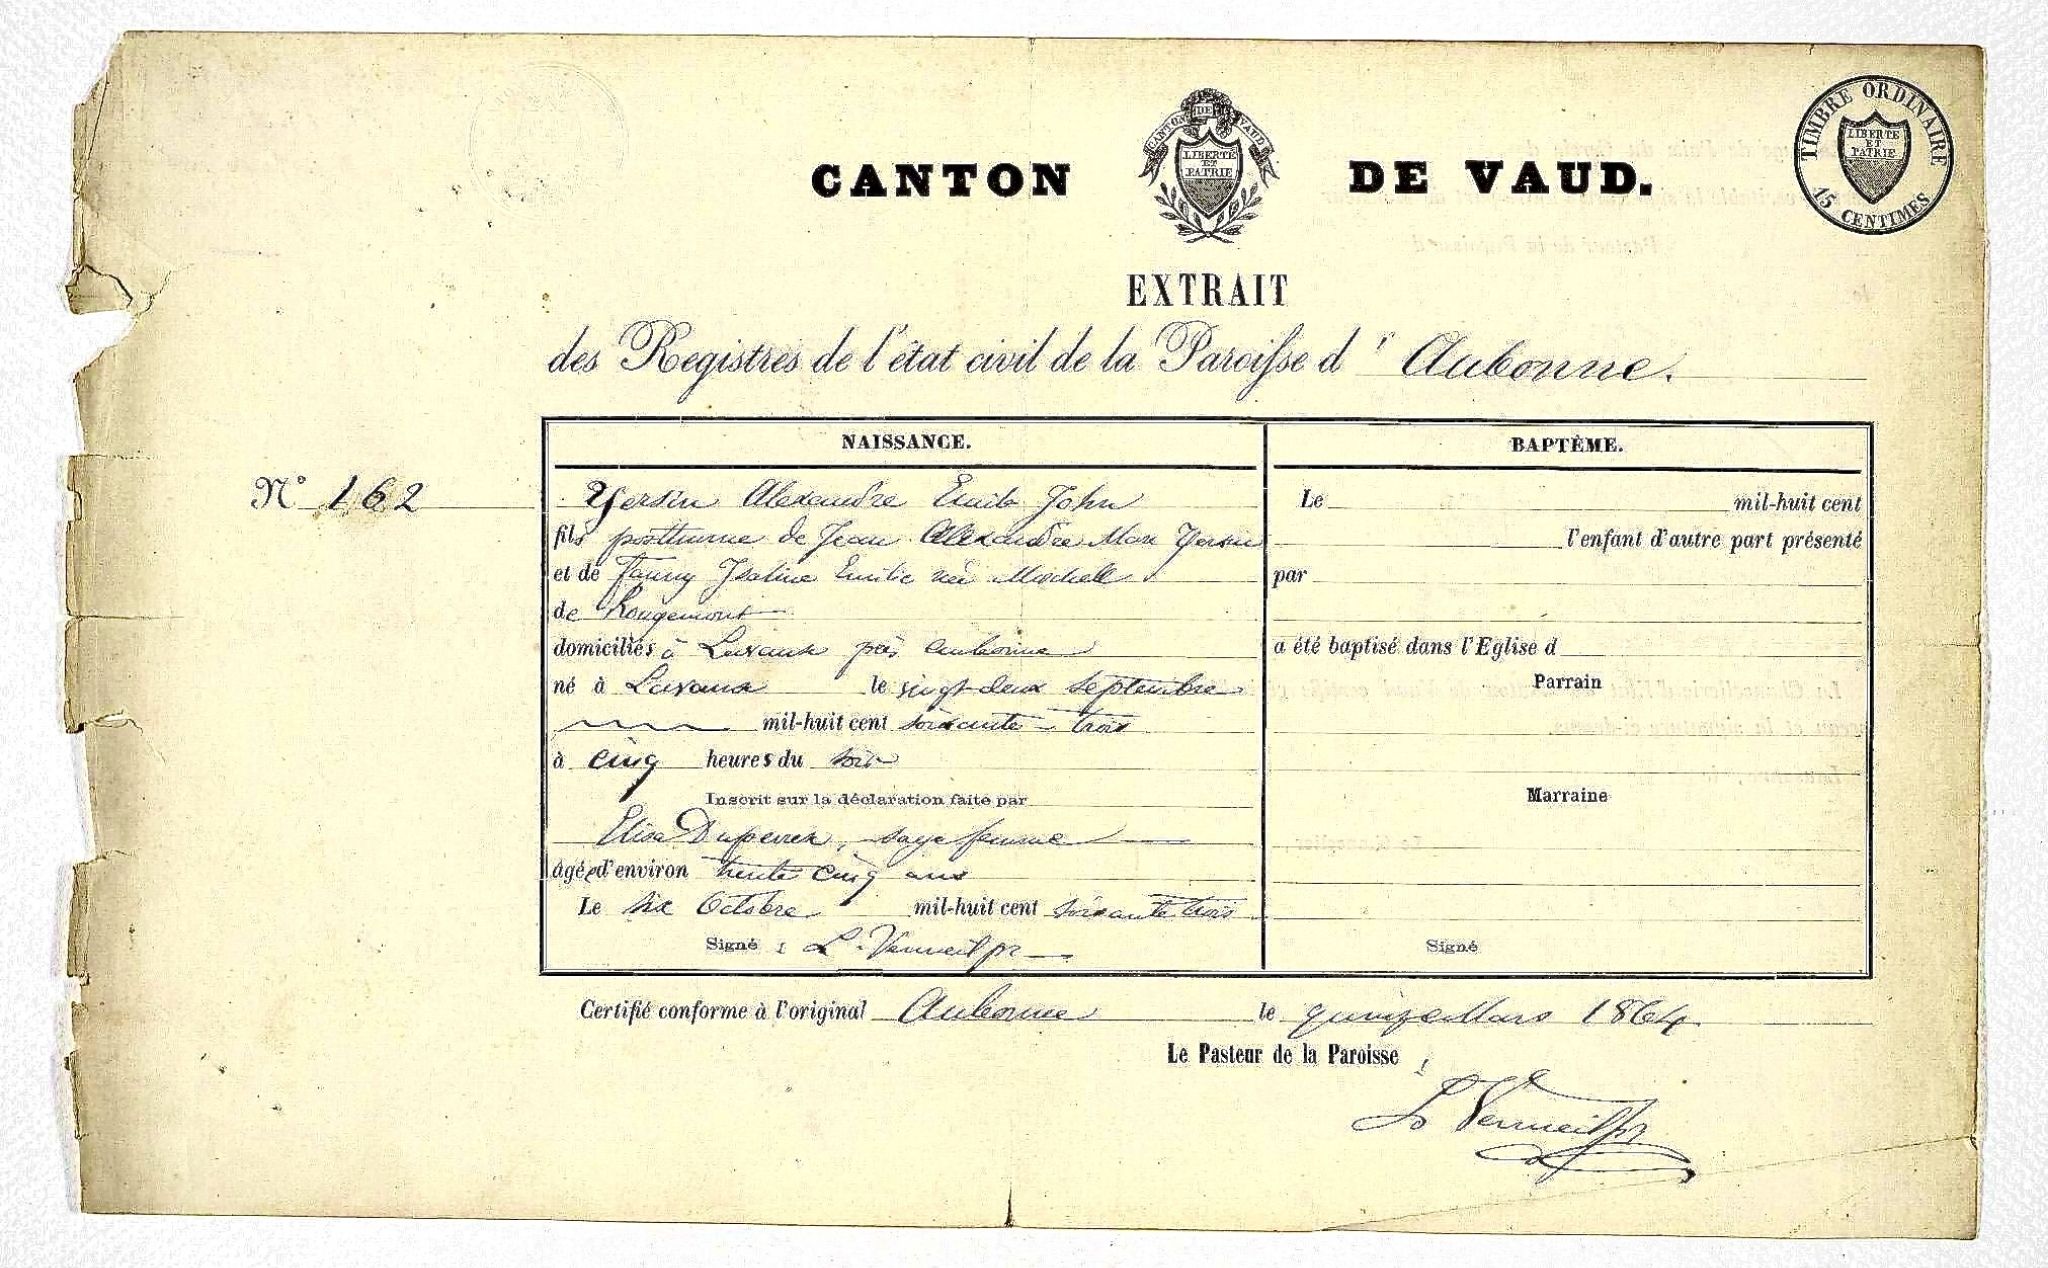 CANTON DE VAUD.
CANTON DE VAUD
LIBERTÉ
ET
PATRIE
TIMBRE ORDINAIRE
LIBERTE
ET
PATRIE
15 CENTIMES
EXTRAIT
des Registres de l'état civil de la Paroisse d' Aubonne.
N° 162
NAISSANCE.
Yersin Alexandre Emile John
fils posthume de Jean Alexandre Marc Yersin
et de Fanny Isaline Emilie née Moschell
de Rougemont
domiciliés à Lavaux près Aubonne
né à Lavaux le vingt-deux Septembre
mil-huit cent soixante-trois
à cinq heures du soir
Inscrit sur la déclaration faite par
Elisa Duperrex, sage femme
âgée d'environ trente cinq ans
Le six Octobre mil-huit cent soixante trois
Signé : L. Vermeil pr
BAPTÈME.
Le mil-huit cent
l'enfant d'autre part présenté
par
a été baptisé dans l'Eglise d
Parrain
Marraine
Signé
Certifié conforme à l'original Aubonne le quinze Mars 1864.
Le Pasteur de la Paroisse :
Ls Vermeil pr